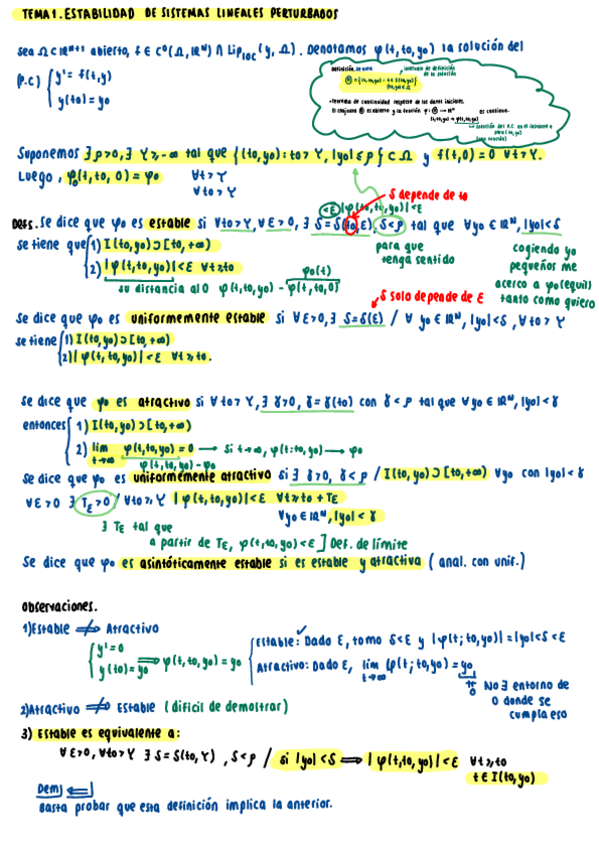 TEMA 1. ESTABILIDAD DE SISTEMAS LINEALES PERTURBADOS
Sea Ω⊂ℝᴺ⁺¹ abierto, f ∈ C⁰(Ω, ℝᴺ) ∩ Lip_loc(y, Ω). Denotamos φ(t,to,yo) la solución del
(P.C) { y' = f(t,y)
y(to) = yo
Definición.
intervalo de definición de la solución
Teorema de continuidad respecto de los datos iniciales.
El conjunto Θ es abierto y la función φ: Θ → ℝᴺ es continua.
Suponemos ∃ρ>0, ∃ γ≥-∞ tal que {(to,yo): to>γ, |yo|≤ρ} ⊂ Ω y f(t,0)=0 ∀t>γ.
Luego, φo(t,to,0) = φo ∀t>γ
∀to>γ
<ε |φ(to,to,yo)|<ε
δ depende de to
Defs. Se dice que φo es estable si ∀to>γ, ∀ε>0, ∃ δ=δ(to,ε), δ<ρ tal que ∀yo∈ℝᴺ, |yo|<δ
se tiene que { 1) I(to,yo)⊃[to,+∞)
2) |φ(t,to,yo)|<ε ∀t≥to
para que tenga sentido
cogiendo yo pequeños me acerco a φo(equil) tanto como quiero
su distancia al 0 φ(t,to,yo) - φ(t,to,0)
φo(t)
δ solo depende de ε
Se dice que φo es uniformemente estable si ∀ε>0, ∃ δ=δ(ε) / ∀ yo∈ℝᴺ, |yo|<δ, ∀to>γ
se tiene { 1) I(to,yo)⊃[to,+∞)
2) |φ(t,to,yo)|<ε ∀t≥to.
Se dice que φo es atractivo si ∀to>γ, ∃ ɣ>0, ɣ=ɣ(to) con ɣ<ρ tal que ∀yo∈ℝᴺ, |yo|<ɣ
entonces { 1) I(to,yo)⊃[to,+∞)
2) lim t→∞ φ(t,to,yo)=0 → Si t→∞, φ(t;to,yo)→φo
φ(t,to,yo)-φo
Se dice que φo es uniformemente atractivo si ∃ ɣ>0, ɣ<ρ / I(to,yo)⊃[to,+∞) ∀yo con |yo|<ɣ
∀ε>0 ∃ Tε>0 / ∀to≥γ |φ(t,to,yo)|<ε ∀t≥to+Tε
∀yo∈ℝᴺ, |yo|<ɣ
∃ Tε tal que
a partir de Tε, φ(t,to,yo)<ε ] Def. de límite
Se dice que φo es asintóticamente estable si es estable y atractiva (anal. con unif.)
Observaciones.
1) Estable ⇏ Atractivo
{ y'=0
y(to)=yo ⟹ φ(t,to,yo)=yo
{ Estable: Dado ε, tomo δ<ε y |φ(t;to,yo)|=|yo|<δ<ε
Atractivo: Dado ε, lim t→∞ φ(t;to,yo)=yo
≠ 0 No ∃ entorno de 0 donde se cumpla eso
2) Atractivo ⇏ Estable (difícil de demostrar)
3) Estable es equivalente a:
∀ε>0, ∀to>γ ∃ δ=δ(to,γ), δ<ρ / si |yo|<δ ⟹ |φ(t,to,yo)|<ε ∀t≥to
t∈I(to,yo)
Dem) ⟸
Basta probar que esta definición implica la anterior.